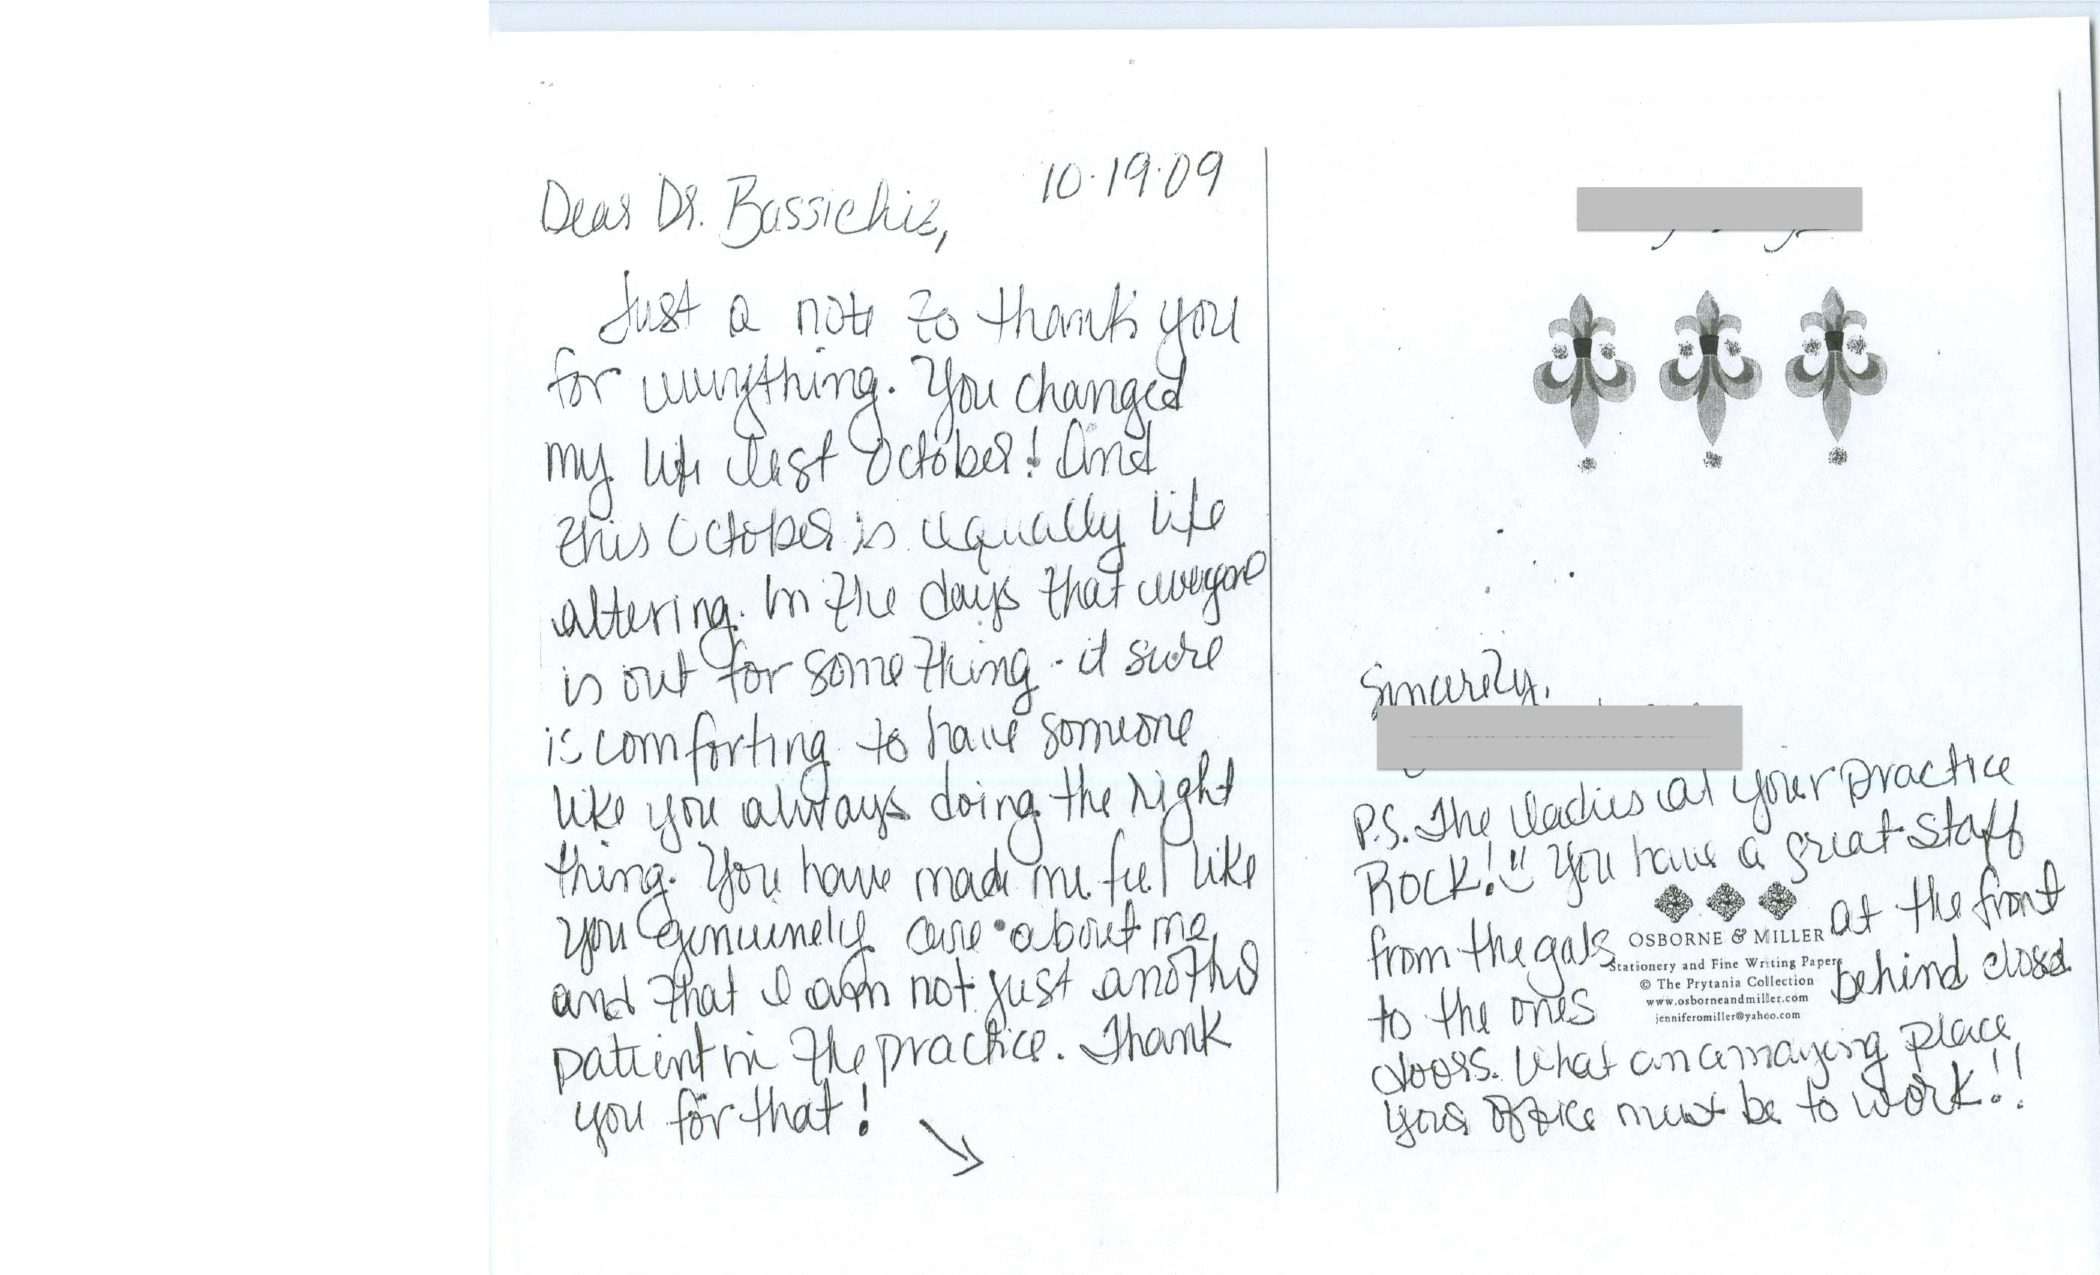 10·19·09
Dear Dr. Bassichis,
Just a note to thank you
for everything. You changed
my life last October! And
this October is equally life
altering. In the days that everyone
is out for something - it sure
is comforting to have someone
like you always doing the right
thing. You have made me feel like
you genuinely care about me
and that I am not just another
patient in the practice. Thank
you for that!
Sincerely,
P.S. The ladies at your practice
Rock! You have a great staff
from the gals at the front
to the ones behind closed
doors. What an amazing place
your office must be to work!!
OSBORNE & MILLER
Stationery and Fine Writing Papers
© The Prytania Collection
www.osborneandmiller.com
jenniferomiller@yahoo.com